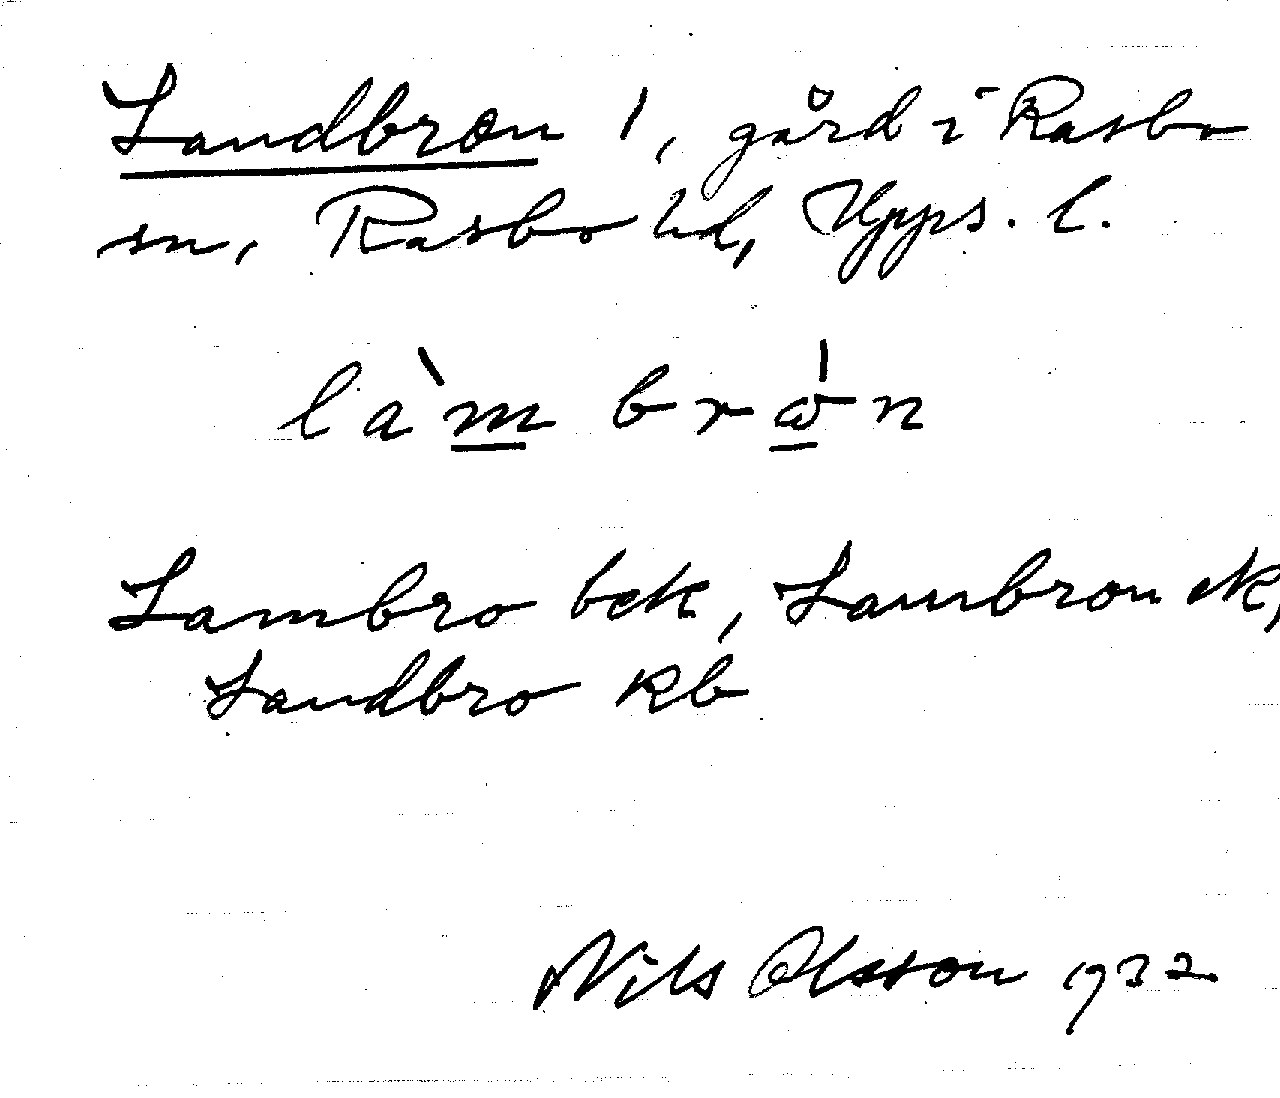 Sandbron 1, gård i Rasbo
sn, Rasbo hd, Upps. l.
làm brὼn
Lambro bek, Lambron ek,
Sandbro kb
Nils Olsson 1932